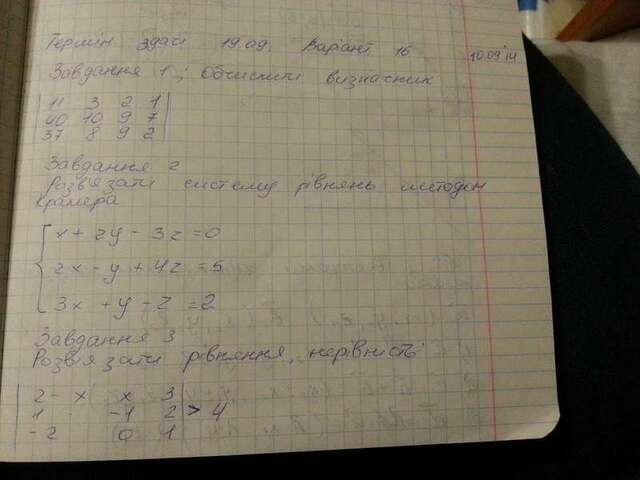 Термін здачі 19.09. Варіант 16 10.09'14
Завдання 1; Обчислити визначник
| 11 3 2 1 |
| 40 10 9 7 |
| 37 8 9 2 |
Завдання 2
Розв'язати систему рівнянь методом
Крамера
{ x + 2y - 3z = 0
2x - y + 4z = 5
3x + y - z = 2
Завдання 3
Розв'язати рівняння, нерівність
| 2 - x x 3 |
| 1 -1 2 | > 4
| -2 0 1 |